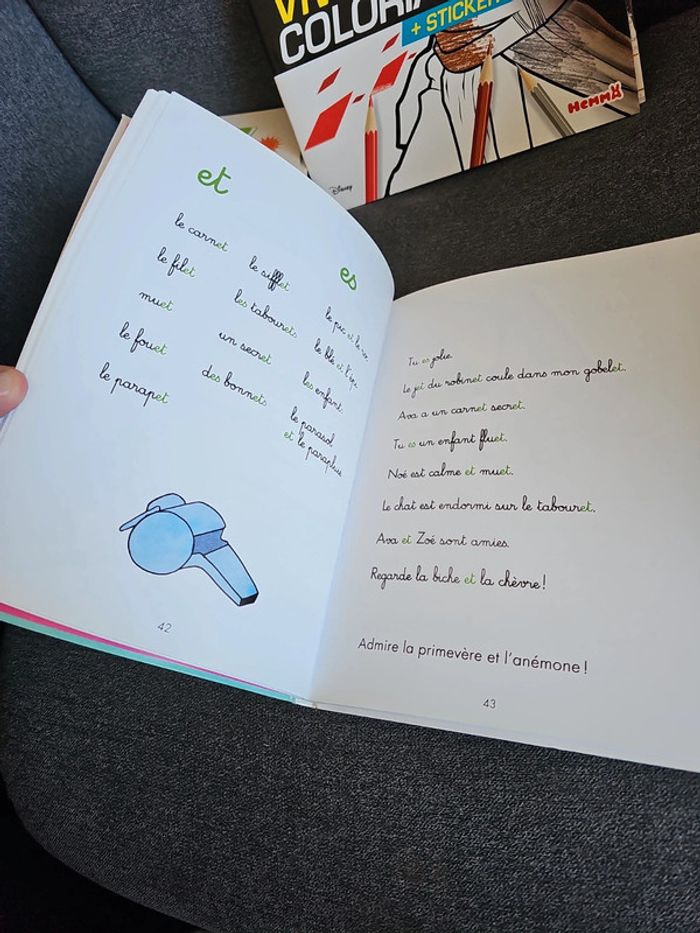 COLORIA
+ STICKER
HEMMA
Disney
et
le carnet
le filet
muet
le fouet
le parapet
le sifflet
les tabourets
un secret
des bonnets
es
le pic et le
le blé et l'épi
les enfants
le parasol
et le parapluie
42
Tu es jolie.
Le jet du robinet coule dans mon gobelet.
Ava a un carnet secret.
Tu es un enfant fluet.
Noé est calme et muet.
Le chat est endormi sur le tabouret.
Ava et Zoé sont amies.
Regarde la biche et la chèvre !
Admire la primevère et l'anémone !
43